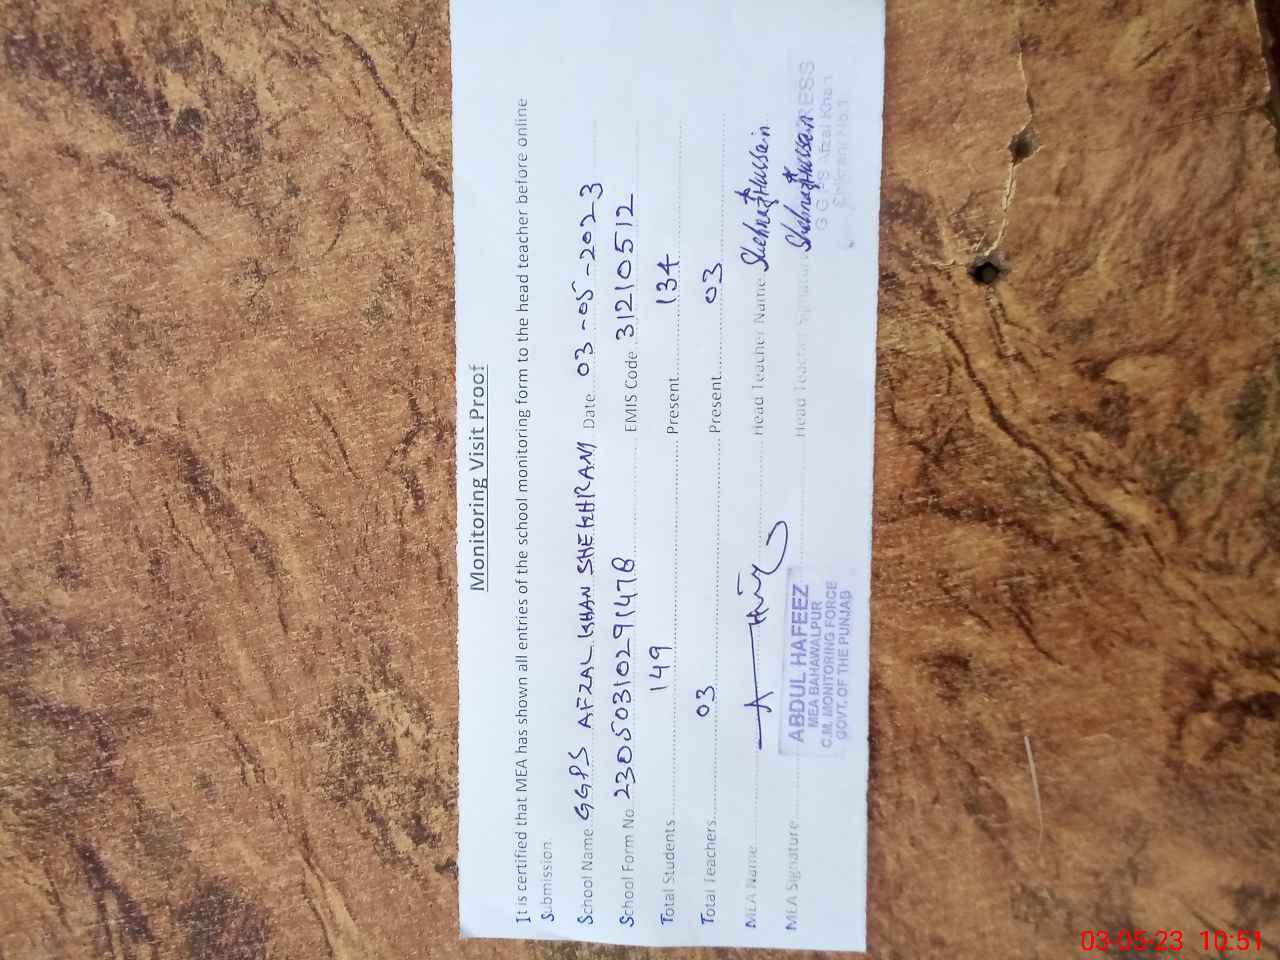 Monitoring Visit Proof
It is certified that MEA has shown all entries of the school monitoring form to the head teacher before online
Submission.
School Name GGPS AFZAL KHAN SHEKHRANI Date 03-05-2023
School Form No 23050310291478 EMIS Code 31210512
Total Students 149 Present 134
Total Teachers 03 Present 03
MEA Name Head Teacher Name Shehnaz Hussain
MEA Signature Head Teacher Signature Shehnaz Hussain
ABDUL HAFEEZ
MEA BAHAWALPUR
C.M. MONITORING FORCE
GOVT. OF THE PUNJAB
GGPS Afzal Khan
03-05-23 10:51